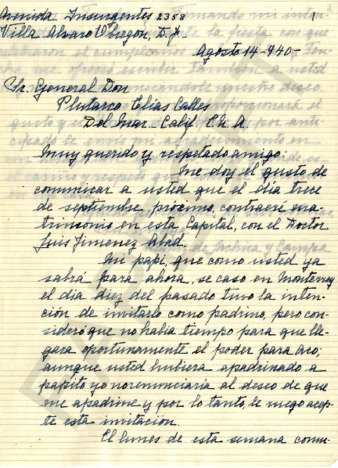 Avenida Insurgentes 2358
Villa Alvaro Obregon, D.F.
Agosto 14-940-
Sr. General Don
Plutarco Elías Calles
Del Mar-Calif. E.U.A.
Muy querido y respetado amigo:
Me doy el gusto de
comunicar a usted que el día trece
de septiembre próximo, contraeré ma-
trimonio en esta Capital, con el Doctor
Luis Jimenez Abad.
Mi papi, que como usted ya
sabrá para ahora, se caso en Monterrey
el día diez del pasado tuvo la inten-
ción de invitarlo como padrino, pero con-
sideró que no había tiempo para que lle-
gara oportunamente el poder para ;
aunque usted hubiera apadrinado a
papito yo no renunciaria al deseo de que
me apadrine y por lo tanto, le ruego acep-
te esta invitacion.
El lunes de esta semana comu-